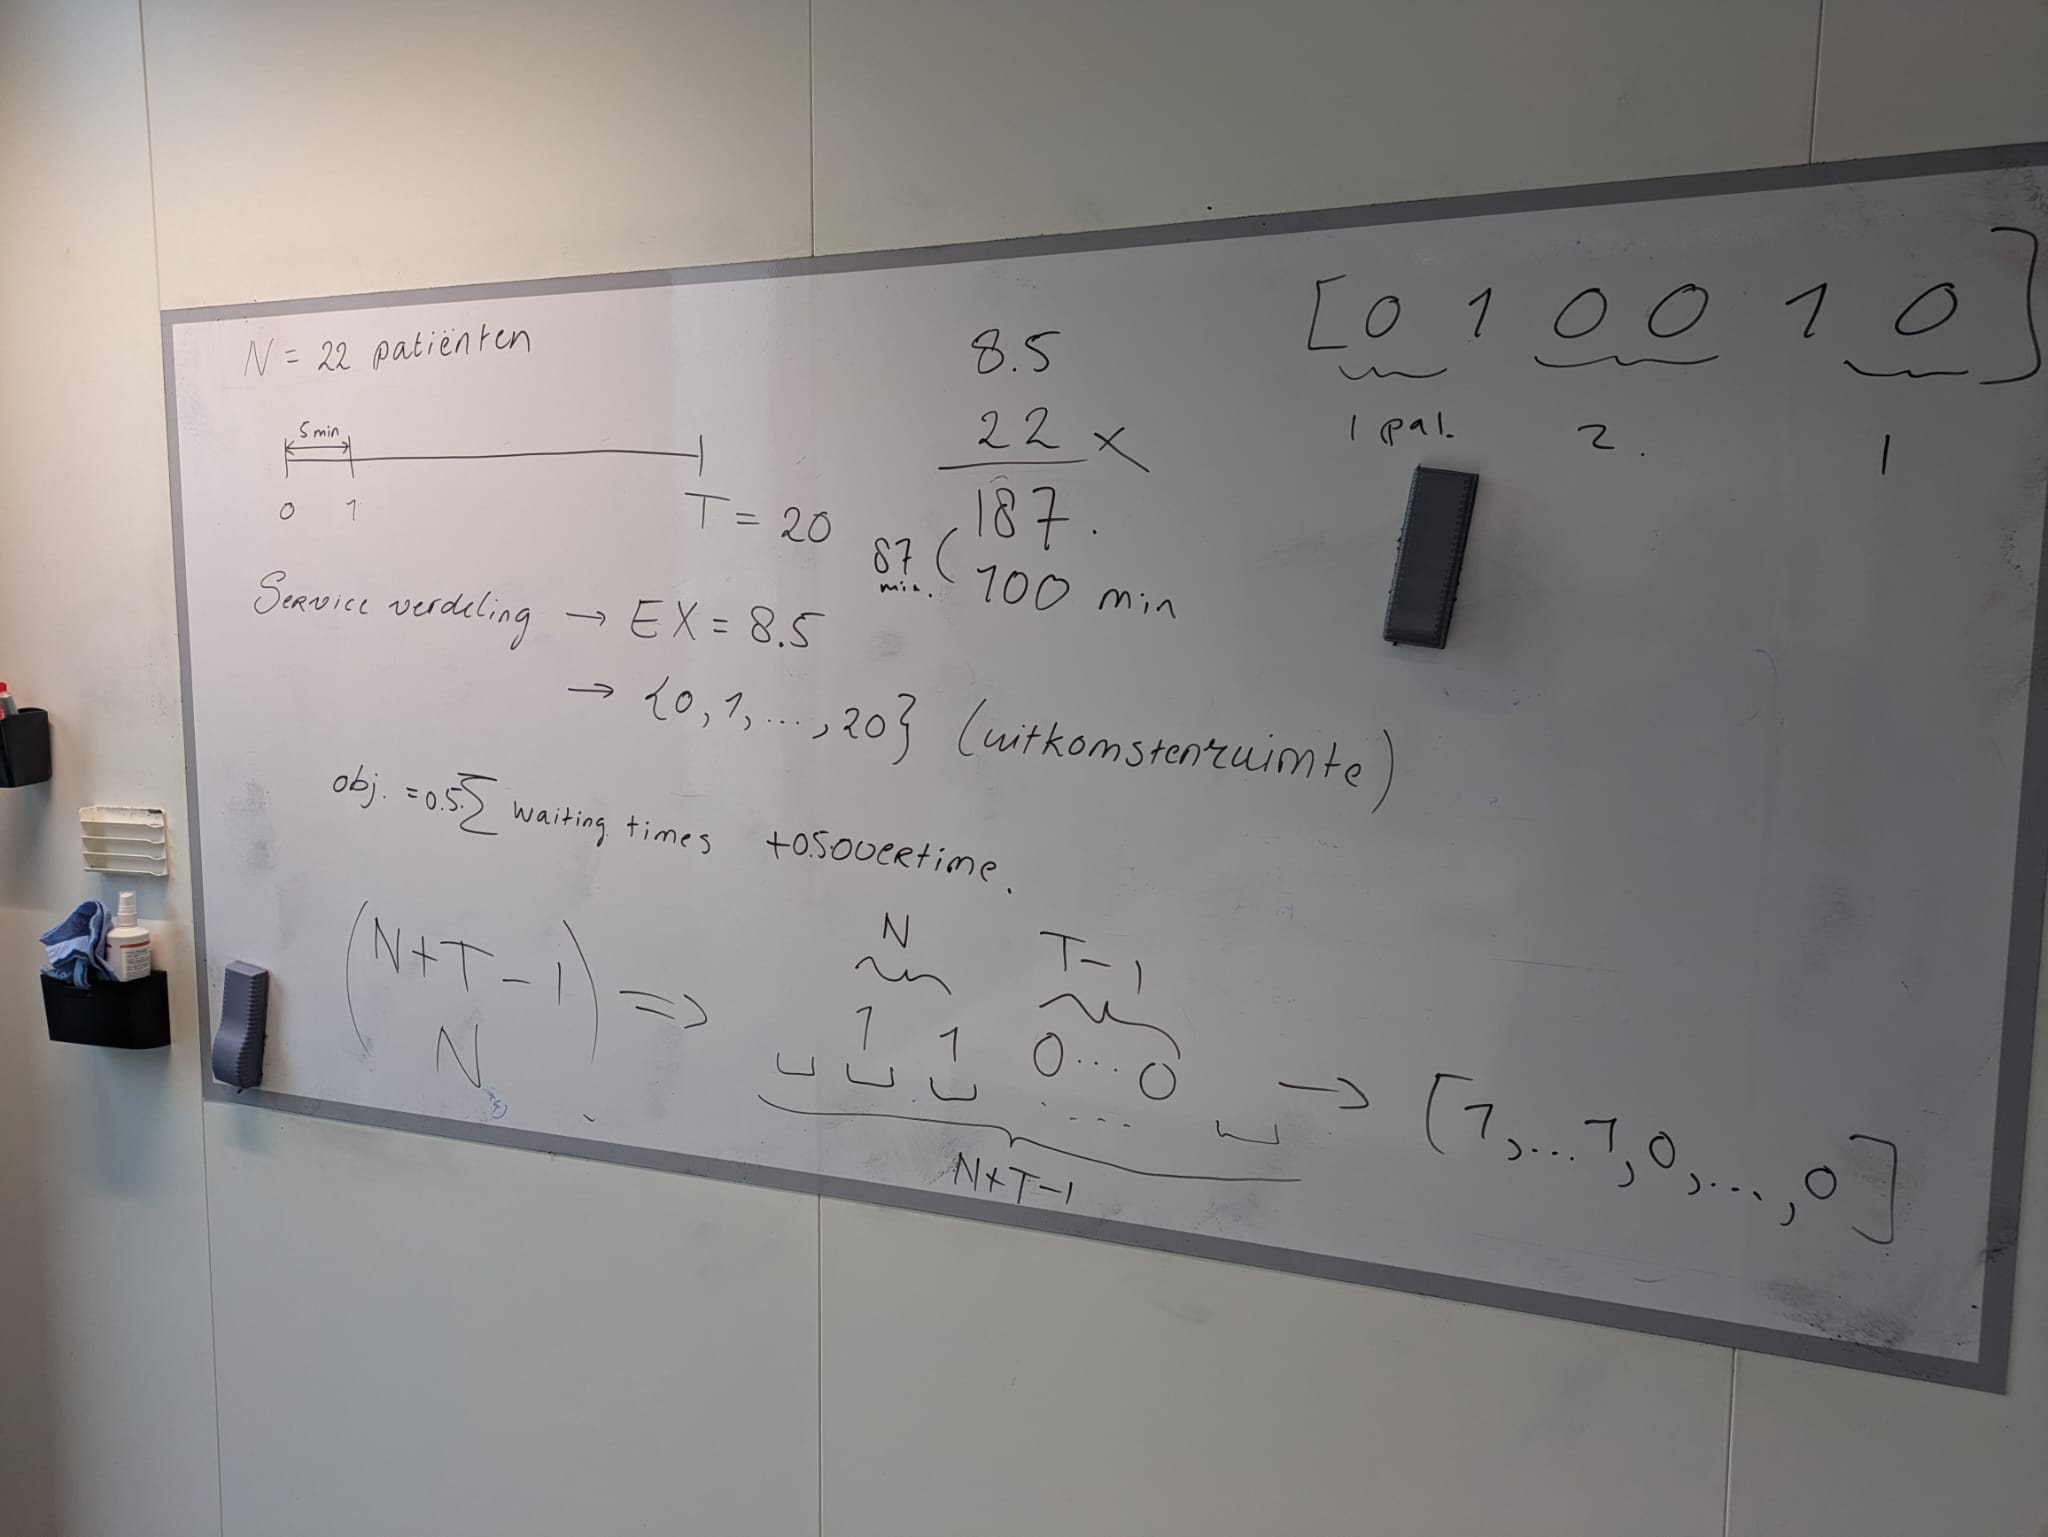 N = 22 patiënten
5 min
0 1
T = 20
Service verdeling → EX = 8.5
→ {0, 1, ..., 20} (uitkomstenruimte)
obj. = 0.5 ∑ waiting times + 0.5 overtime.
8.5
22 ×
187.
87 min. ( 100 min
[0 1 0 0 1 0]
1 pat. 2. 1
(N+T-1
N) =>
N T-1
1 1 0 ... 0
....
N+T-1
→ [1, ... 1, 0, ..., 0]